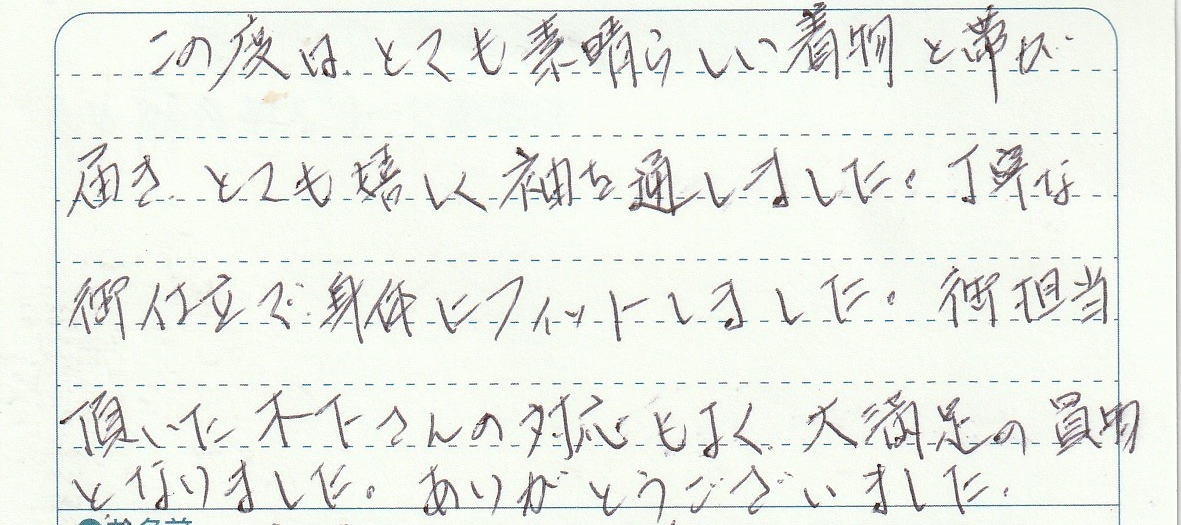 この度は、とても素晴らしい着物と帯が
届き、とても嬉しく袖を通しました。丁寧な
御仕立で身体にフィットしました。御担当
頂いた木下さんの対応もよく、大満足の買物
となりました。ありがとうございました。